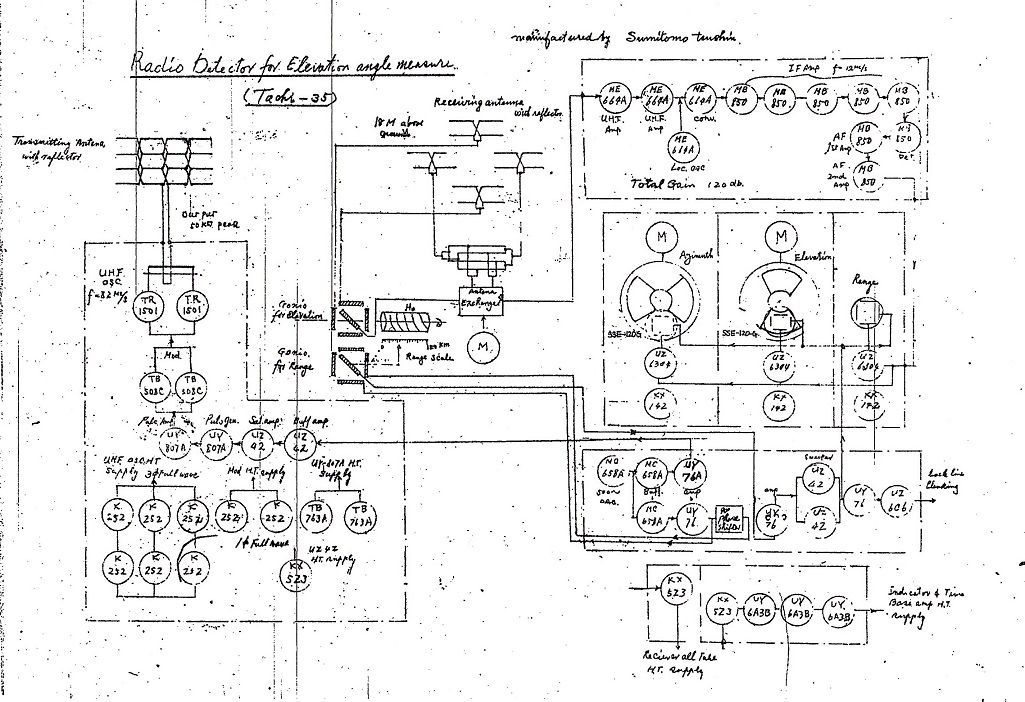 manufactured by Sumitomo tsushin.
Radio Detector for Elevation angle measure.
(Tachi-35)
Transmitting Antena
with reflector
Out put
50 KW peak
U.H.F.
OSC
f=82 M/s
TR
1501
TR
1501
Mod
TB
508C
TB
508C
Puls Amp
Puls Gen.
Sel. amp
Buff amp
UY
807A
UY
807A
UZ
42
UZ
42
UHF OSC H.T
Supply 3φ full wave
Mod H.T. supply
UY-807A H.T.
Supply
K
252
K
252
K
252
K
252
K
252
TB
763A
TB
763A
1φ Full wave
K
252
K
252
K
252
UZ 42
H.T. supply
KX
523
Receiving antenna
with reflector
18 M above
ground
Antena
Exchanger
M
Gonio
for Elevation
Gonio.
for Range
Range Scale
IF Amp f=12 M/s
ME
664A
ME
664A
ME
614A
MB
850
MB
850
MB
850
MB
850
MB
850
U.H.F.
Amp
U.H.F.
Amp
conv.
ME
614A
Loc. osc
AF
1st Amp
MB
850
MB
850
Det.
AF
2nd
Amp
MB
850
Total Gain 120 db.
M
Azimuth
SSE-120G
UZ
6304
KX
142
M
Elevation
SSE-120-G
UZ
6304
KX
142
Range
UZ
6304
KX
142
NO
658A
MC
658A
UY
76A
Buff.
amp
MC
658A
UY
76
Phase
Shifter
amp
UY
76
UZ
42
UZ
42
UY
76
UZ
6C6
KX
523
Reciever all Tube
H.T. supply
KX
523
UY
6A3B
UY
6A3B
UY
6A3B
Indicator & Time
Base amp H.T.
supply